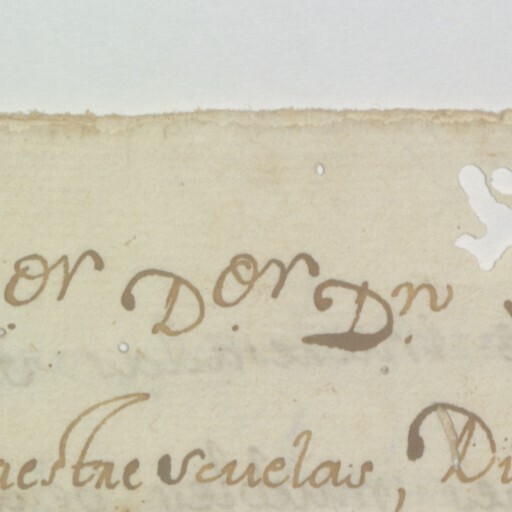 or D.or D.n
aestre scuelas, Di